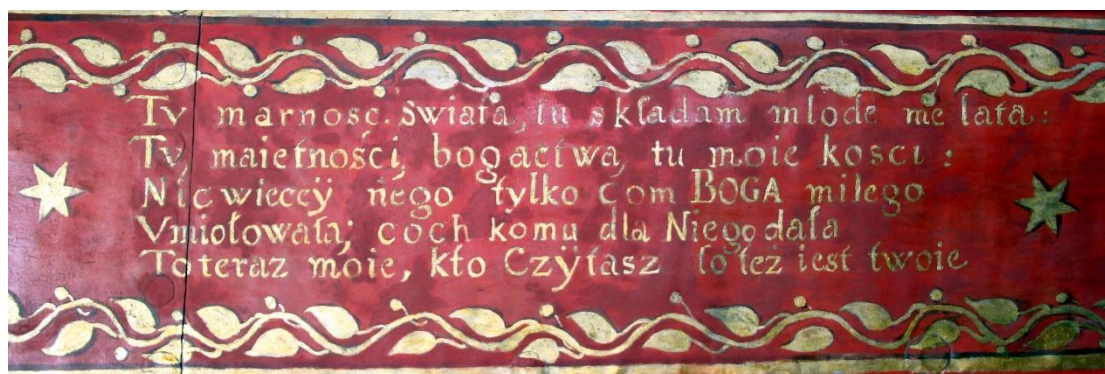 Tv marność świata, tu składam młode me lata:
Tv, maiętności, bogactwa, tu moie kosci:
Nic wieccÿ nego tylko com BOGA miłego
Vmiołowała; coch komu dla Niego dała
To teraz moie, kto Czÿtasz to też iest twoie